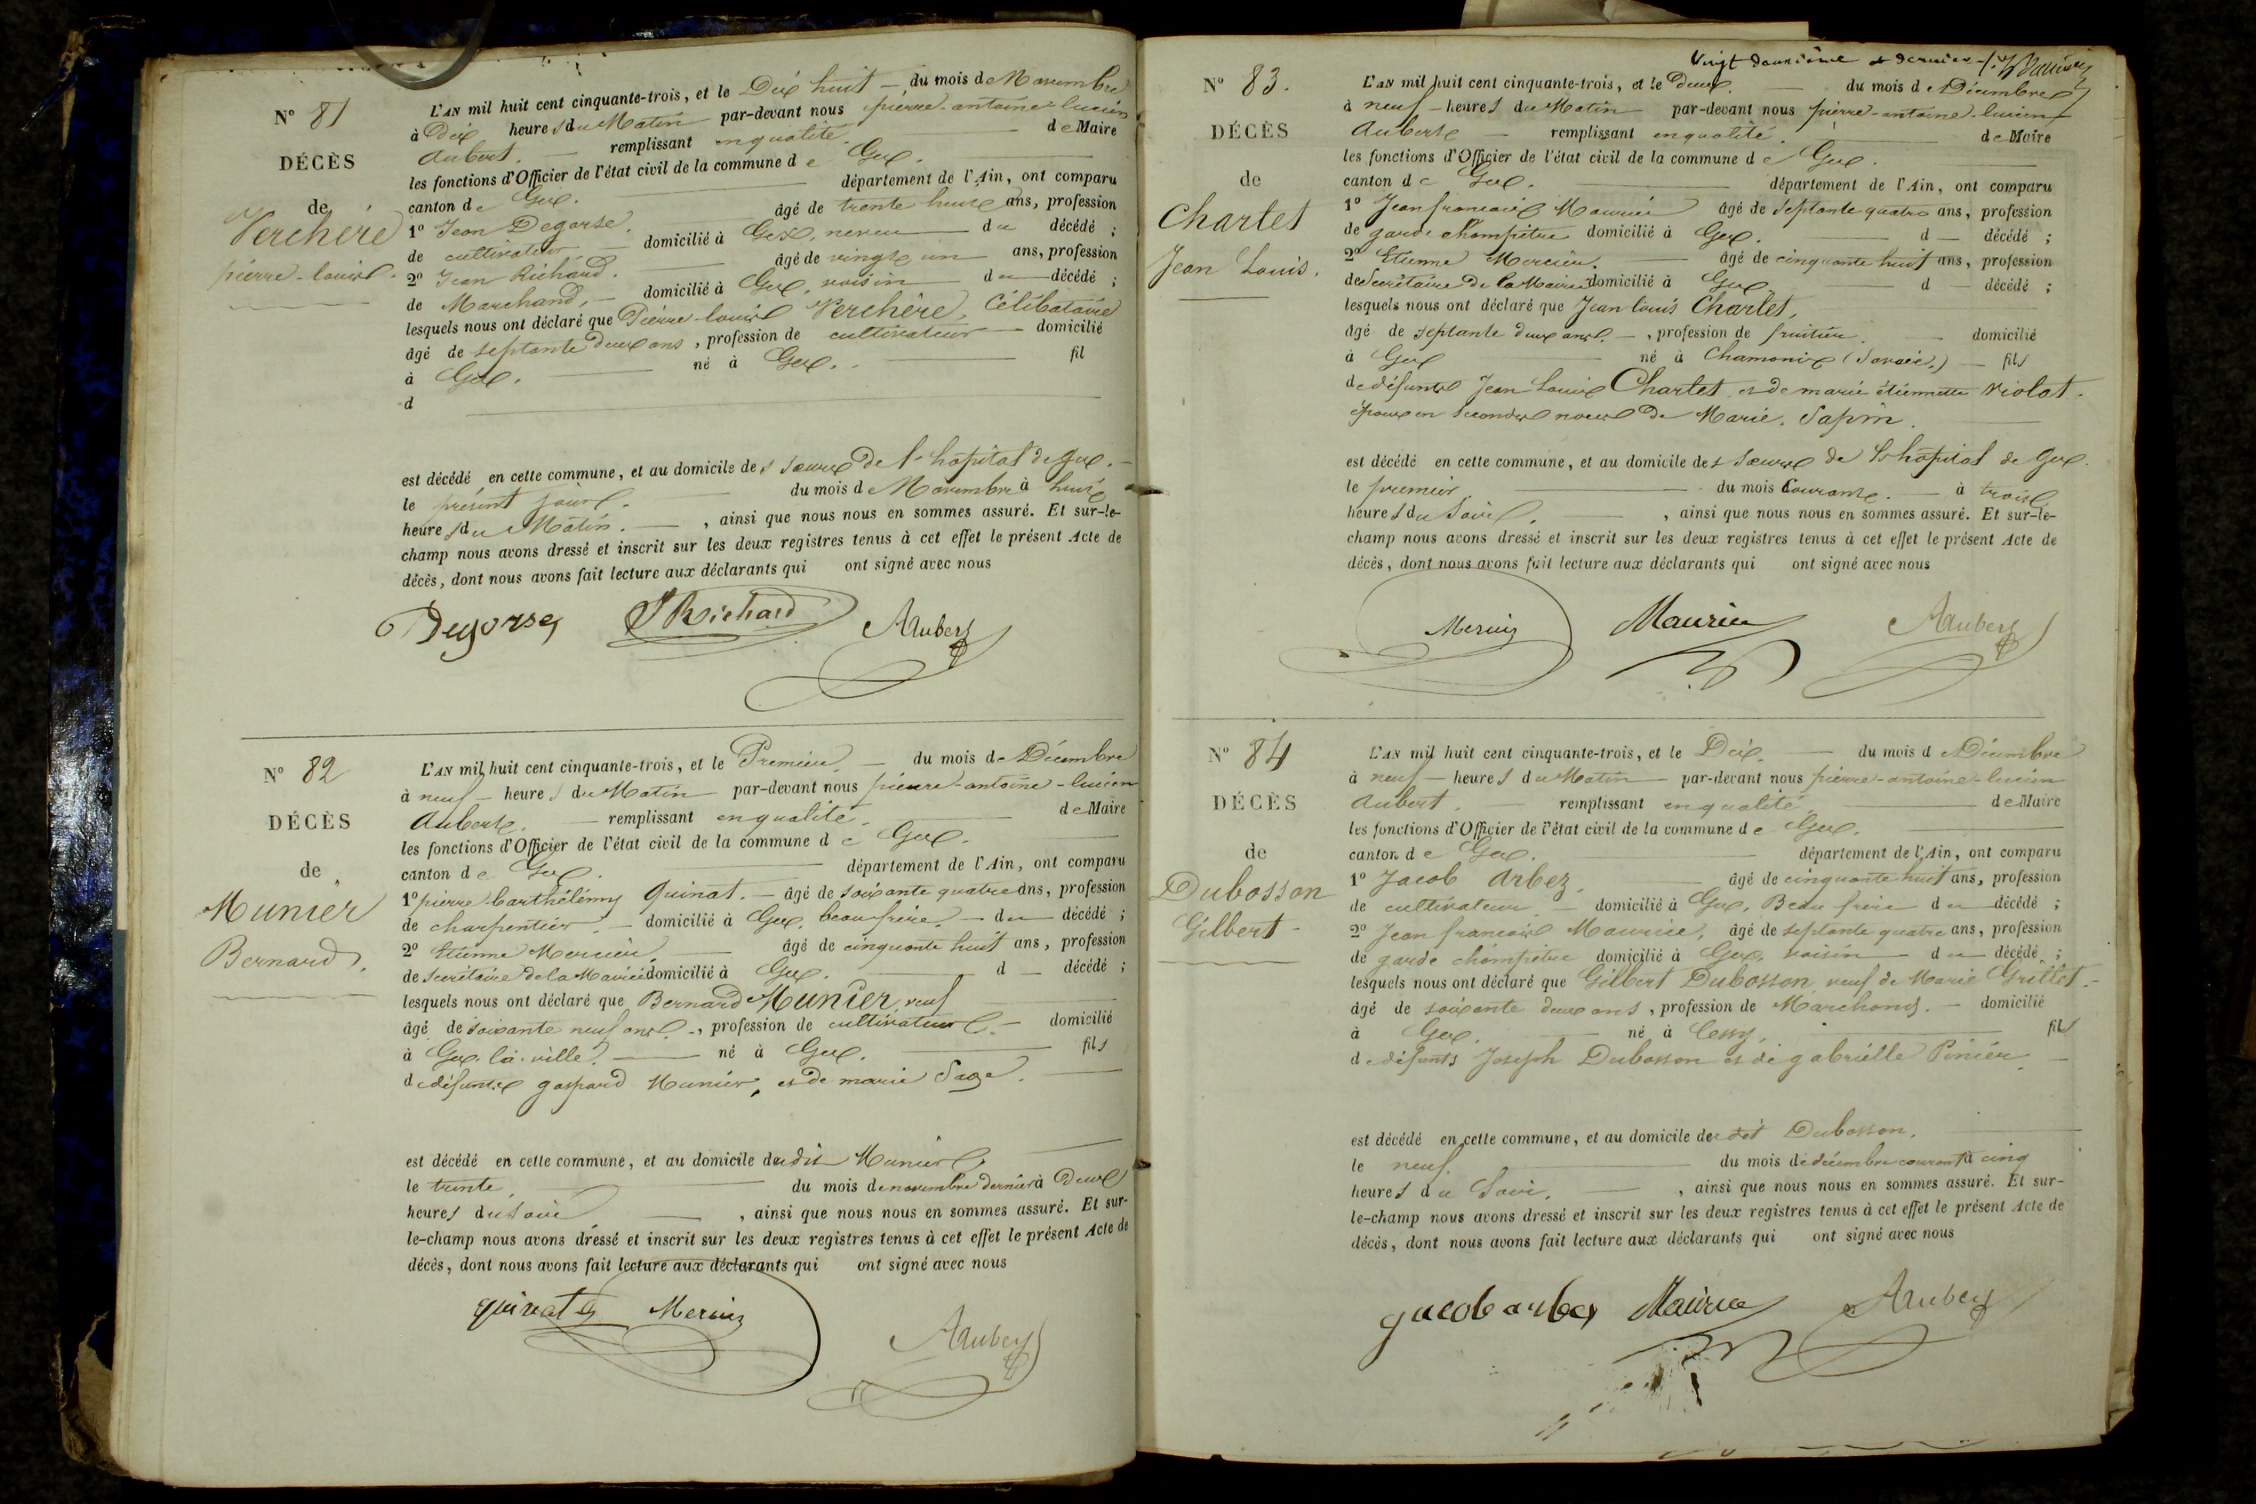 N° 81
DÉCÈS
de
Verchère
pierre-louis.
L'AN mil huit cent cinquante-trois, et le Dix huit — du mois de Novembre
à Dix heures du Matin par-devant nous pierre-antoine-lucien
Aubert. — remplissant en qualité. — de Maire
les fonctions d'Officier de l'état civil de la commune de Gex.
canton de Gex. — département de l'Ain, ont comparu
1° Jean Degorse. — âgé de trente huit ans, profession
de cultivateur — domicilié à Gex, neveu — du décédé ;
2° Jean Richard. — âgé de vingt un ans, profession
de Marchand, — domicilié à Gex, voisin du — décédé ;
lesquels nous ont déclaré que Pierre-louis Verchère, Célibataire
âgé de septante deux ans, profession de cultivateur — domicilié
à Gex. — né à Gex. — fil
d
est décédé en cette commune, et au domicile des sœurs de l'hôpital de Gex. —
le présent jour. — du mois de Novembre à huit
heures du Matin. — , ainsi que nous nous en sommes assuré. Et sur-le-
champ nous avons dressé et inscrit sur les deux registres tenus à cet effet le présent Acte de
décès, dont nous avons fait lecture aux déclarants qui ont signé avec nous
Degorse J Richard AAubert
N° 82
DÉCÈS
de
Munier
Bernard.
L'AN mil huit cent cinquante-trois, et le Premier. — du mois de Décembre
à neuf — heures du Matin par-devant nous pierre-antoine-lucien
Aubert. — remplissant en qualité. — de Maire
les fonctions d'Officier de l'état civil de la commune de Gex.
canton de Gex. — département de l'Ain, ont comparu
1° pierre-barthélémy Quinat. — âgé de soixante quatre ans, profession
de charpentier. — domicilié à Gex, beau frère. — du décédé ;
2° Etienne Mercier. — âgé de cinquante huit ans, profession
de Secrétaire de la Mairie domicilié à Gex. — d — décédé ;
lesquels nous ont déclaré que Bernard Munier, veuf
âgé de soixante neuf ans. —, profession de cultivateur. — domicilié
à Gex-la-ville. — né à Gex. — fils
de défunts gaspard Munier, et de marie Sage. —
est décédé en cette commune, et au domicile du dit Munier.
le trente, — du mois de novembre dernier à Deux
heures du soir — , ainsi que nous nous en sommes assuré. Et sur-
le-champ nous avons dressé et inscrit sur les deux registres tenus à cet effet le présent Acte de
décès, dont nous avons fait lecture aux déclarants qui ont signé avec nous
quinat Mercier AAubert
Vingt deuxième et dernier
N° 83.
DÉCÈS
de
Charlet
Jean Louis.
L'AN mil huit cent cinquante-trois, et le Deux. — du mois de Décembre
à neuf — heures du Matin par-devant nous pierre-antoine-lucien
Aubert — remplissant en qualité. — de Maire
les fonctions d'Officier de l'état civil de la commune de Gex.
canton de Gex. — département de l'Ain, ont comparu
1° Jean francois Maurice âgé de septante quatre ans, profession
de garde champêtre domicilié à Gex. — d — décédé ;
2° Etienne Mercier. — âgé de cinquante huit ans, profession
de Secrétaire de la Mairie domicilié à Gex — d — décédé ;
lesquels nous ont déclaré que Jean louis Charlet,
âgé de septante deux ans. —, profession de fruitier. — domicilié
à Gex — né à Chamonix (Savoie.) — fils
de défunts Jean Louis Charlet et de marie étiennette Violat.
époux en secondes noces de Marie Sapin.
est décédé en cette commune, et au domicile des sœurs de L'hôpital de Gex.
le premier — du mois Courant. — à trois
heures du Soir. — , ainsi que nous nous en sommes assuré. Et sur-le-
champ nous avons dressé et inscrit sur les deux registres tenus à cet effet le présent Acte de
décès, dont nous avons fait lecture aux déclarants qui ont signé avec nous
Mercier Maurice AAubert
N° 84
DÉCÈS
de
Dubosson
Gilbert -
L'AN mil huit cent cinquante-trois, et le Dix. — du mois de Décembre
à neuf — heures du Matin — par-devant nous pierre-antoine-lucien
Aubert. remplissant en qualité — de Maire
les fonctions d'Officier de l'état civil de la commune de Gex.
canton de Gex. — département de l'Ain, ont comparu
1° Jacob Arbez. — âgé de cinquante huit ans, profession
de cultivateur — domicilié à Gex, Beau frère du décédé ;
2° Jean francois Maurice, âgé de septante quatre ans, profession
de garde champêtre domicilié à Gex, voisin — du décédé ;
lesquels nous ont déclaré que Gilbert Dubosson, veuf de Marie Grillet. -
âgé de soixante deux ans, profession de Marchand. — domicilié
à Gex. — né à Cessy. — fils
de défunts Joseph Dubosson et de gabrielle Pinier. —
est décédé en cette commune, et au domicile du dit Dubosson.
le neuf. — du mois de décembre courant à cinq
heures du Soir. — , ainsi que nous nous en sommes assuré. Et sur-
le-champ nous avons dressé et inscrit sur les deux registres tenus à cet effet le présent Acte de
décès, dont nous avons fait lecture aux déclarants qui ont signé avec nous
jacob arbez Maurice AAubert